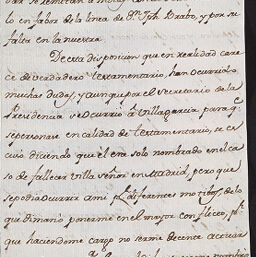 lo en falta de la linea de Dn. Tph. Drabo, y por su
falta en la nuestra.
De esta disposicion que en realidad care
ce de verdadero testamentario, han ocurrido
muchas dudas, y aunque por el secretario de la
Presidencia se ocurrio à Villagarcia para q.e
se personase en calidad de testamentario, se es
cusò diciendo que èl era solo nombrado en el ca
so de fallecer Villa señor en Madrid, pero que
se podia ocurrir à mi pr. diferentes motibos, de lo
que dimanò ponerme en el mayor conflicto, pr.
que haciendome cargo no serme decente